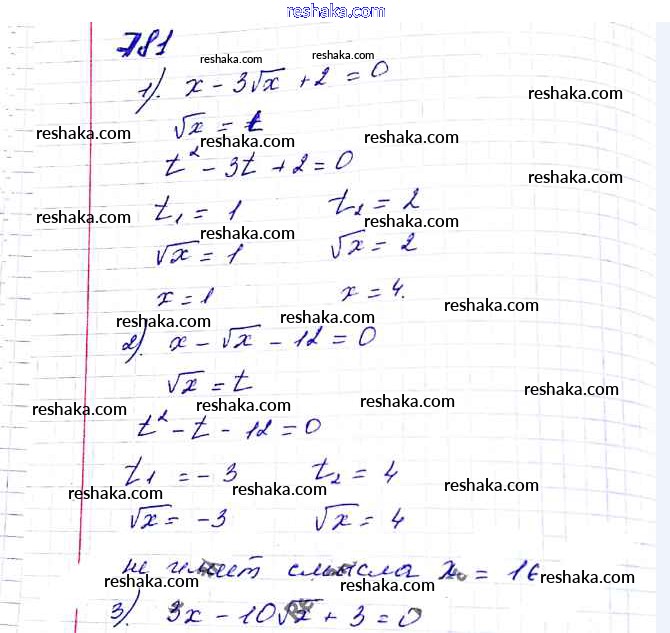 reshaka.com
781
reshaka.com reshaka.com
1). x - 3√x + 2 = 0
reshaka.com
√x = t
reshaka.com reshaka.com reshaka.com
t² - 3t + 2 = 0
reshaka.com
t₁ = 1 t₂ = 2
reshaka.com reshaka.com reshaka.com
√x = 1 √x = 2
x = 1 x = 4.
reshaka.com reshaka.com reshaka.com
2). x - √x - 12 = 0
√x = t
reshaka.com reshaka.com reshaka.com reshaka.com
t² - t - 12 = 0
t₁ = -3 t₂ = 4
reshaka.com reshaka.com reshaka.com
√x = -3 √x = 4
не имеет смысла x = 16
reshaka.com reshaka.com reshaka.com
3). 3x - 10√x + 3 = 0